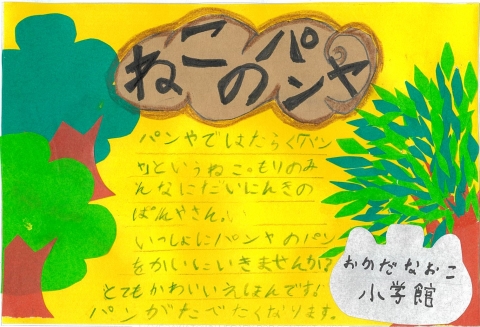 ねこのパンヤ
パンやではたらく「パン
や」というねこ。もりのみ
んなにだいにんきの
ぱんやさん。
いっしょにパンヤのパン
をかいにいきませんか?
とてもかわいいえほんです!
パンがたべたくなります。
おかだなおこ
小学館